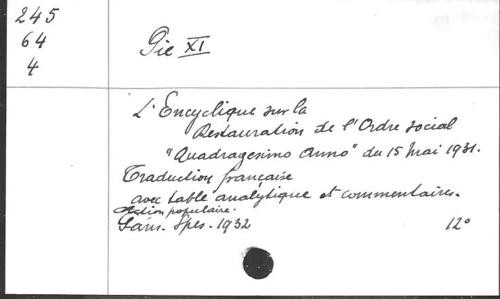 245
64
4
Pie XI
L'Encyclique sur la
Restauration de l'Ordre social
"Quadragesimo Anno" du 15 Mai 1931.
Traduction française
avec table analytique et commentaires.
Action populaire.
Paris. Spes. 1932 12°